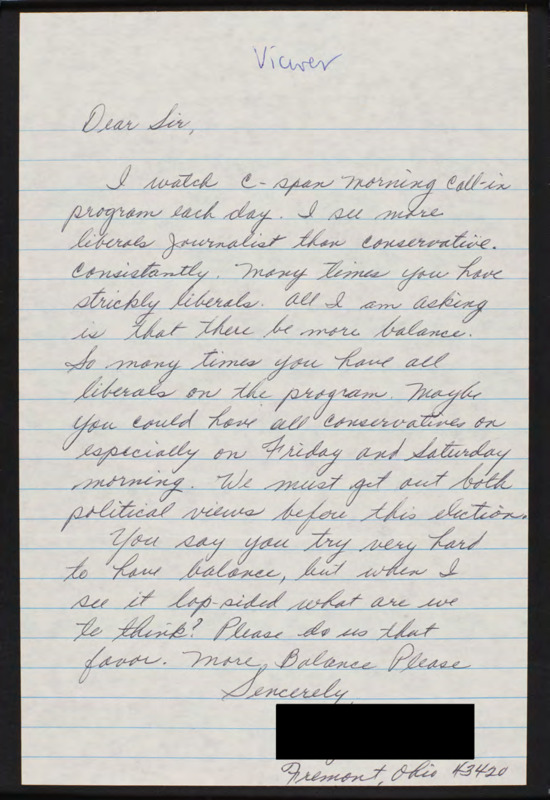 Viewer
Dear Sir,
I watch C-span morning Call-in
program each day. I see more
liberals Journalist than conservative.
Consistantly. Many times you have
strickly liberals. All I am asking
is that there be more balance.
So many times you have all
liberals on the program. Maybe
you could have all conservatives on
especially on Friday and Saturday
morning. We must get out both
political views before this election.
You say you try very hard
to have balance, but when I
see it lop-sided what are we
to think? Please do us that
favor. More, Balance Please
Sencerely,
Fremont, Ohio 43420